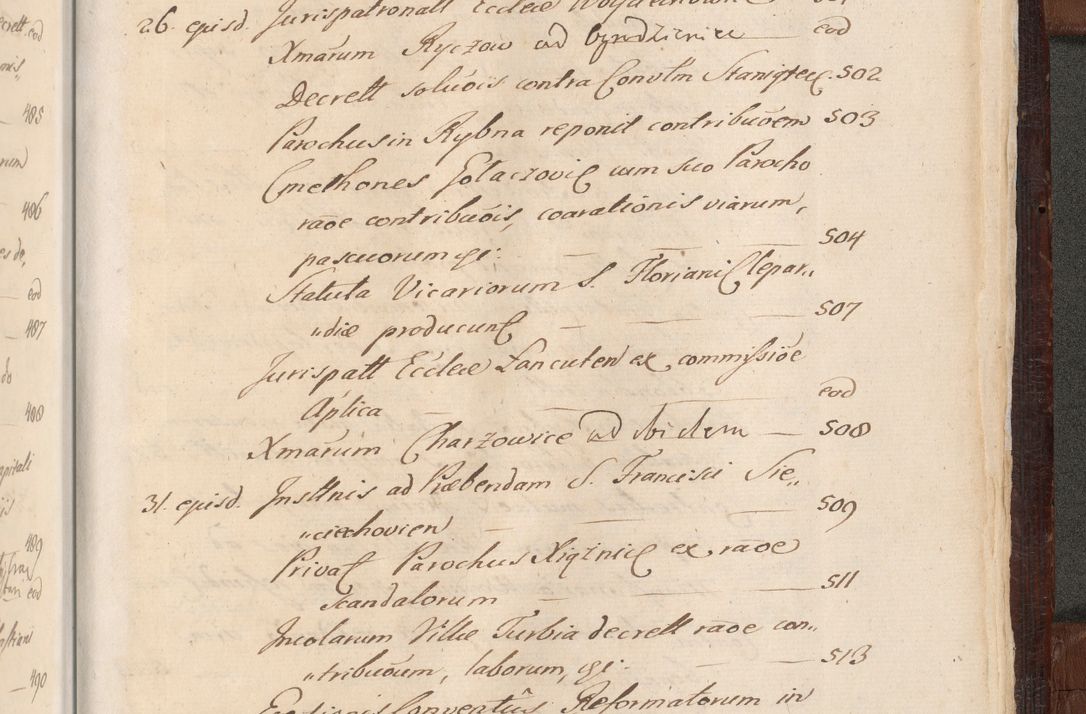 26. episd. Jurispatronatt Eccleæ
Xmarum Ryczow ad eod
Decrett soluõis contra Convtm 502
Parochus in Rybna reponit contribuõem 503
Cmethones cum suo Parocho
raõe contribuõis, coarationis viarum,
pascuorum &: — 504
Statuta Vicariorum S. Floriani Clepar„
„diæ producunt — 507
Jurispatt Eccleæ Lancuten ex commissiõe
Aplica — eod
Xmarum Charzowice ad ibidem — 508
31. episd. Insttnis ad Præbendam S. Francisci Sie„
„ciechovien — 509
Privat Parochus ex raõe
scandalorum — 511
Incolarum Villæ Turbia decrett raõe con„
„tribuõum, laborum, &: — 513
Conventûs Reformatorum in
485
486
eod
487
488
489
eod
490